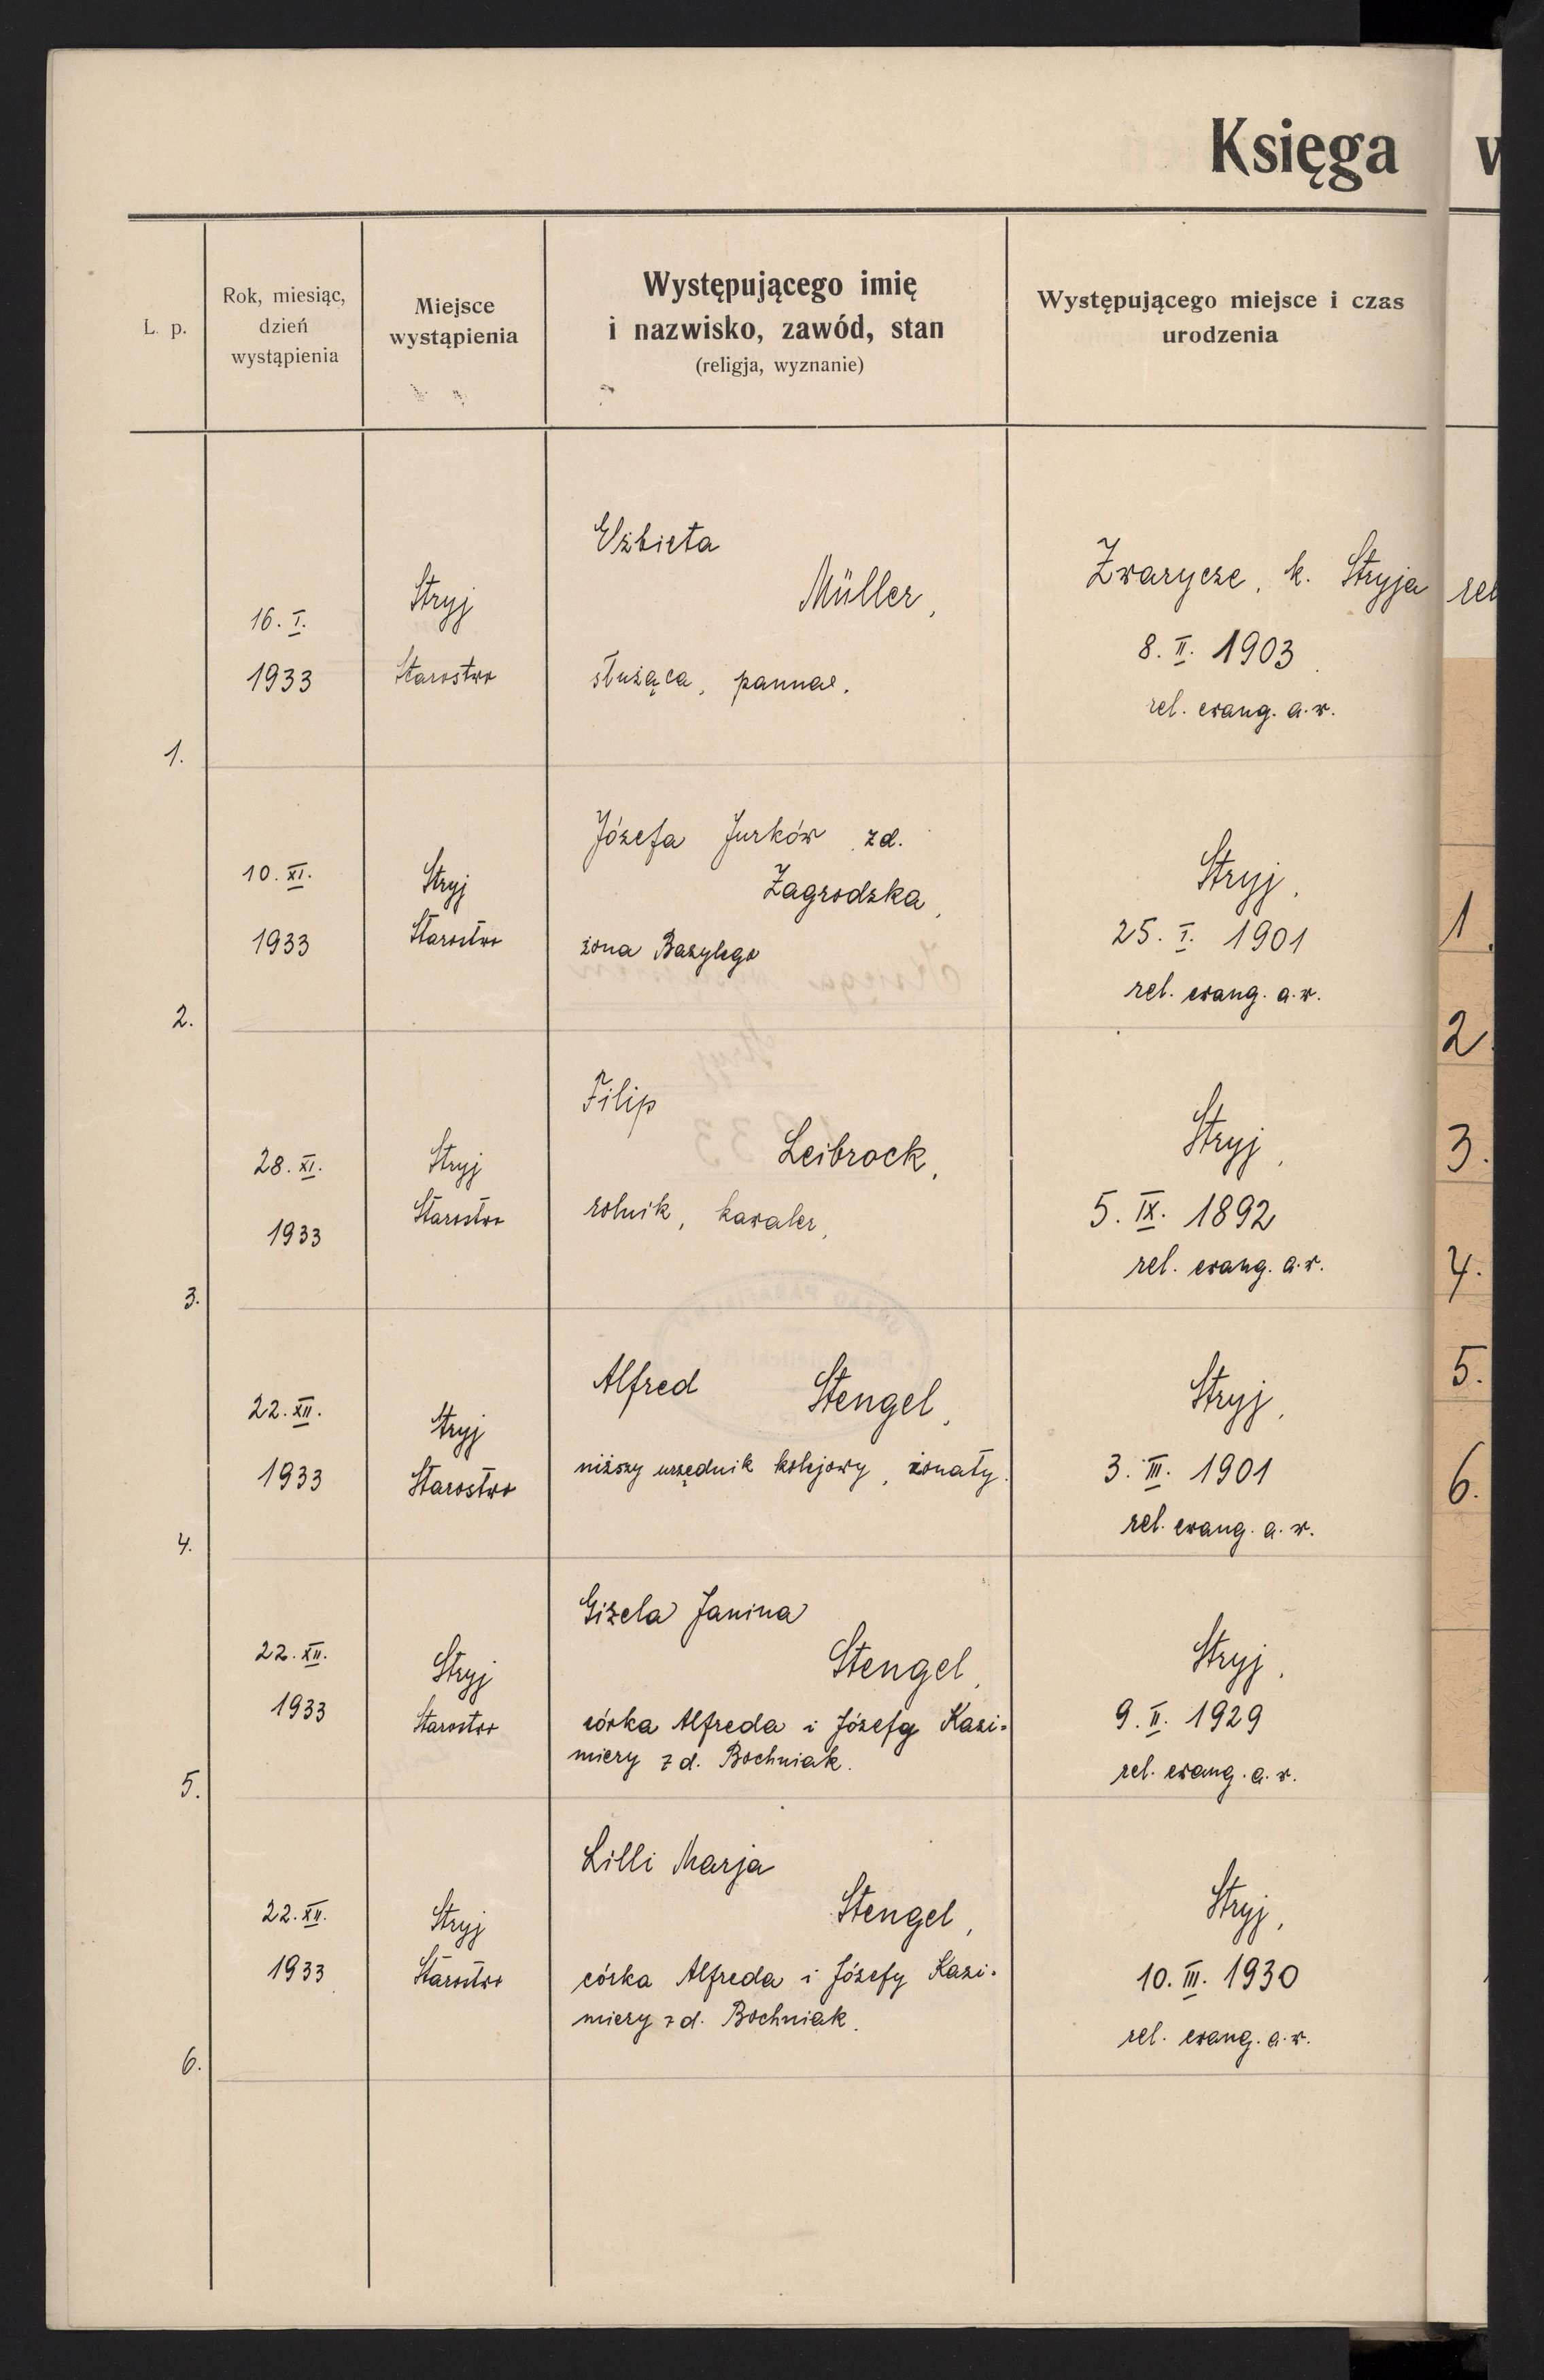 Księga
L. p.
Rok, miesiąc,
dzień
wystąpienia
Miejsce
wystąpienia
Występującego imię
i nazwisko, zawód, stan
(religja, wyznanie)
Występującego miejsce i czas
urodzenia
1.
16. I.
1933
Stryj
Starostwo
Elżbieta
Müller,
służąca, panna.
Zwarycze, k. Stryja
8. II. 1903
rel. ewang. a.w.
2.
10. XI.
1933
Stryj
Starostwo
Józefa Jurków zd.
Zagrodzka,
żona Bazylego
Stryj,
25. I. 1901
rel. ewang. a.w.
3.
28. XI.
1933
Stryj
Starostwo
Filip
Leibrock,
rolnik, kawaler,
Stryj,
5. IX. 1892
rel. ewang. a.w.
4.
22. XII.
1933
Stryj
Starostwo
Alfred Stengel,
niższy urzędnik kolejowy, żonaty.
Stryj,
3. III. 1901
rel. ewang. a.w.
5.
22. XII.
1933
Stryj
Starostwo
Gizela Janina
Stengel,
córka Alfreda i Józefy Kazi-
miery zd. Bochniak.
Stryj,
9. II. 1929
rel. ewang. a.w.
6.
22. XII.
1933
Stryj
Starostwo
Lilli Marja
Stengel,
córka Alfreda i Józefy Kazi-
miery zd. Bochniak.
Stryj,
10. III. 1930
rel. ewang. a.w.
1.
2.
3.
4.
5.
6.